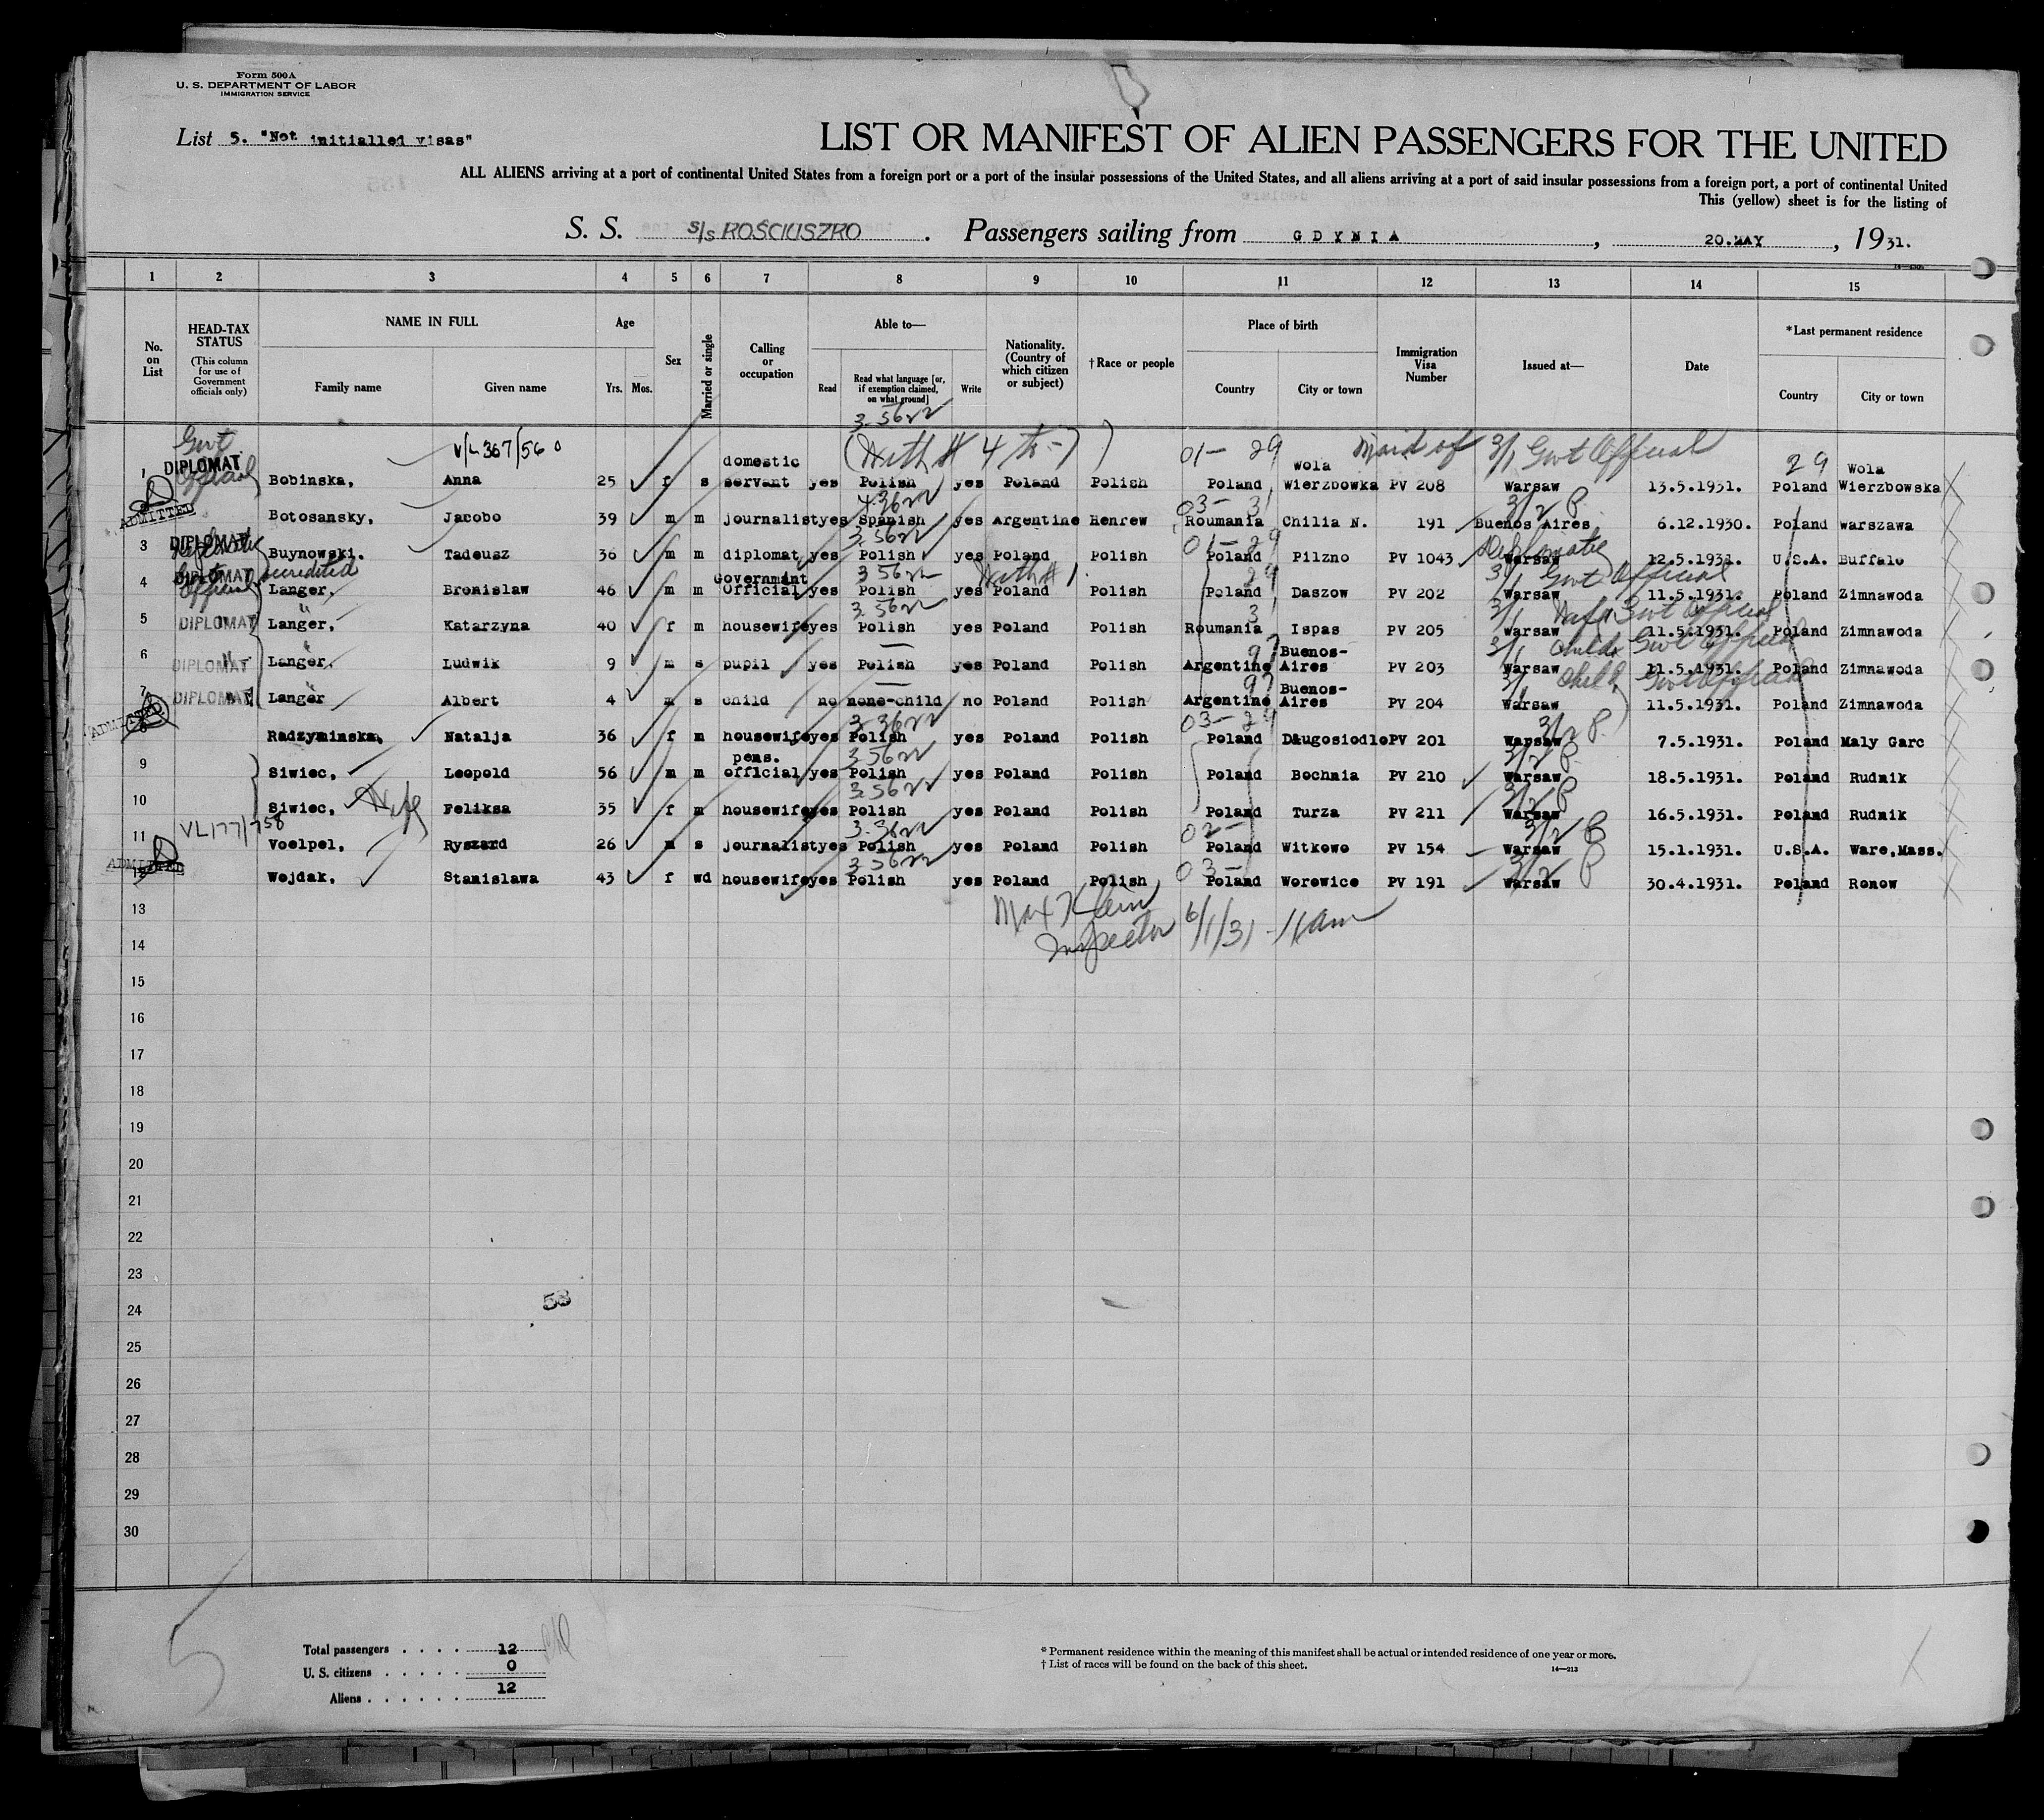 Form 500A
U. S. DEPARTMENT OF LABOR
IMMIGRATION SERVICE
List 5. "Not initialled visas"
LIST OR MANIFEST OF ALIEN PASSENGERS FOR THE UNITED
ALL ALIENS arriving at a port of continental United States from a foreign port or a port of the insular possessions of the United States, and all aliens arriving at a port of said insular possessions from a foreign port, a port of continental United
This (yellow) sheet is for the listing of
S. S. S/S KOŚCIUSZKO . Passengers sailing from GDYNIA , 20.MAY , 1931.
1 2 3 4 5 6 7 8 9 10 11 12 13 14 15
No. on List
HEAD-TAX STATUS (This column for use of Government officials only)
NAME IN FULL Family name Given name
Age Yrs. Mos.
Sex
Married or single
Calling or occupation
Able to— Read Read what language [or, if exemption claimed, on what ground] Write
Nationality. (Country of which citizen or subject)
†Race or people
Place of birth Country City or town
Immigration Visa Number
Issued at—
Date
*Last permanent residence Country City or town
3-5622
Govt Official V/L 367/560 (With # 4 to 7) 01- 29 Maid of 3/1 Govt Official 29
1 DIPLOMAT Bobinska, Anna 25 f s domestic servant yes Polish yes Poland Polish Poland Wola Wierzbowka PV 208 Warsaw 13.5.1931. Poland Wola Wierzbowska
4-3622 03- 31 3/2 P
ADMITTED Botosansky, Jacobo 39 m m journalist yes Spanish yes Argentine Henrew Roumania Chilia N. 191 Buenos Aires 6.12.1930. Poland warszawa
3-5622 01-29 Diplomatic
3 DIPLOMAT Buynowski. Tadeusz 36 m m diplomat yes Polish yes Poland Polish Poland Pilzno PV 1043 Warsaw 12.5.1931. U.S.A. Buffalo
accredited Govt Official 3 5622 With #1. 29 3/1 Govt Official
4 DIPLOMAT Langer, Bronislaw 46 m m Government Official yes Polish yes Poland Polish Poland Daszow PV 202 Warsaw 11.5.1931. Poland Zimnawoda
3-5622 3 3/1 Wife Govt Official
5 DIPLOMAT Langer, Katarzyna 40 f m housewife yes Polish yes Poland Polish Roumania Ispas PV 205 Warsaw 11.5.1931. Poland Zimnawoda
97 3/1 Child Govt Official
6 DIPLOMAT Langer, Ludwik 9 m s pupil yes Polish yes Poland Polish Argentine Buenos-Aires PV 203 Warsaw 11.5.1931. Poland Zimnawoda
97 3/1 Child Govt Official
7 DIPLOMAT Langer Albert 4 m s child no none-child no Poland Polish Argentine Buenos-Aires PV 204 Warsaw 11.5.1931. Poland Zimnawoda
ADMITTED 3-3622 03-29 3/2 P.
8 Radzyminska, Natalja 36 f m housewife yes Polish yes Poland Polish Poland Długosiodlo PV 201 Warsaw 7.5.1931. Poland Maly Garc
3-5622 3/2 P
9 Siwiec, Leopold 56 m m pens. official yes Polish yes Poland Polish Poland Bochnia PV 210 Warsaw 18.5.1931. Poland Rudnik
3-5622 3/2 P
10 Siwiec, Wife Feliksa 35 f m housewife yes Polish yes Poland Polish Poland Turza PV 211 Warsaw 16.5.1931. Poland Rudnik
VL177/758 3-3622 02- 3/2 P
11 Voelpel, Ryszard 26 m s journalist yes Polish yes Poland Polish Poland Witkowo PV 154 Warsaw 15.1.1931. U.S.A. Ware,Mass.
ADMITTED 3-5622 03- 3/2 P
12 Wojdak, Stanislawa 43 f wd housewife yes Polish yes Poland Polish Poland Worowice PV 191 Warsaw 30.4.1931. Poland Ronow
13 Max Klein
14 Inspector 6/1/31 - 11am
15
16
17
18
19
20
21
22
23
24 58
25
26
27
28
29
30
5
Total passengers . . . . 12
U. S. citizens . . . . . 0
Aliens . . . . . . 12
* Permanent residence within the meaning of this manifest shall be actual or intended residence of one year or more.
† List of races will be found on the back of this sheet.
14—213